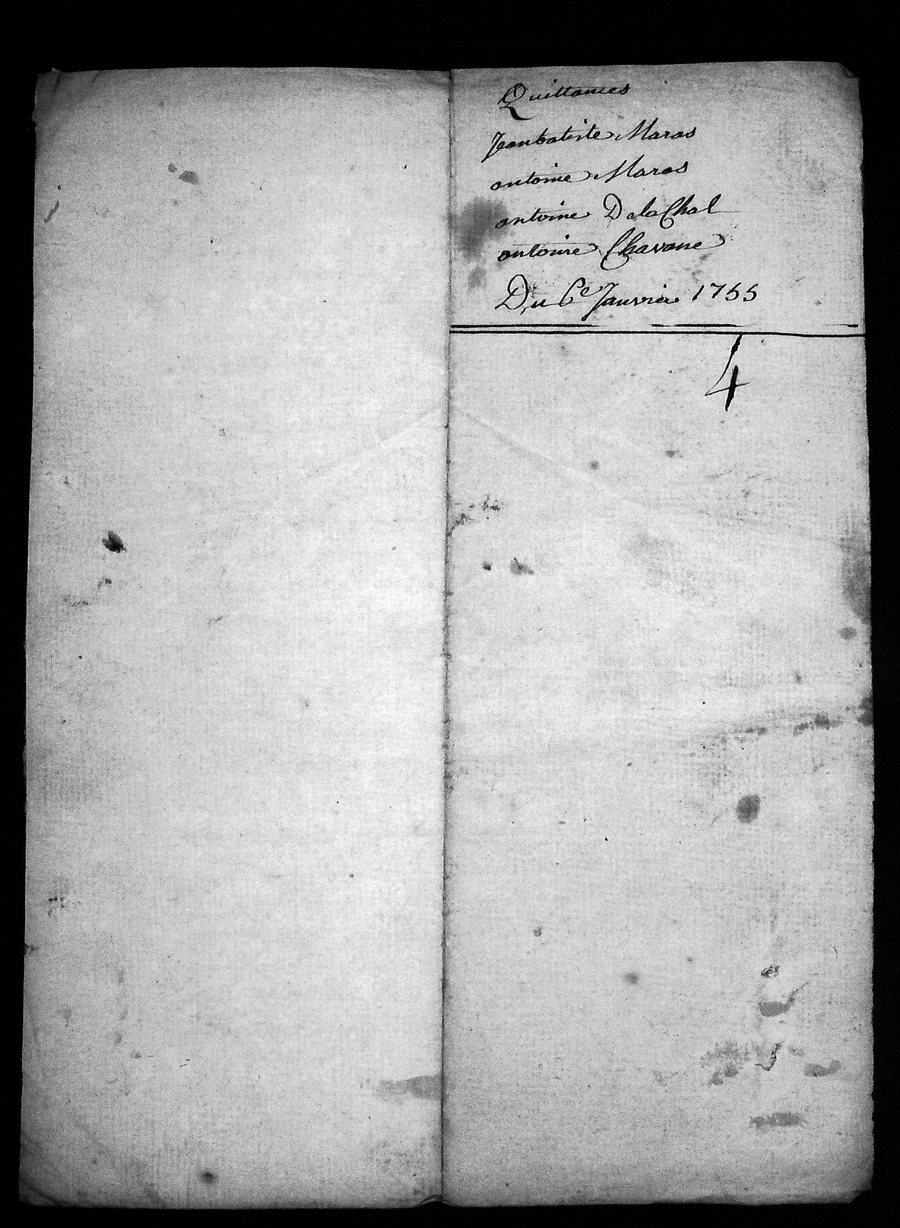 Quittances
Jeanbatiste Maras
antoine Maras
antoine DelaChal
antoine Chavane
Du 6e Janvier 1755
4